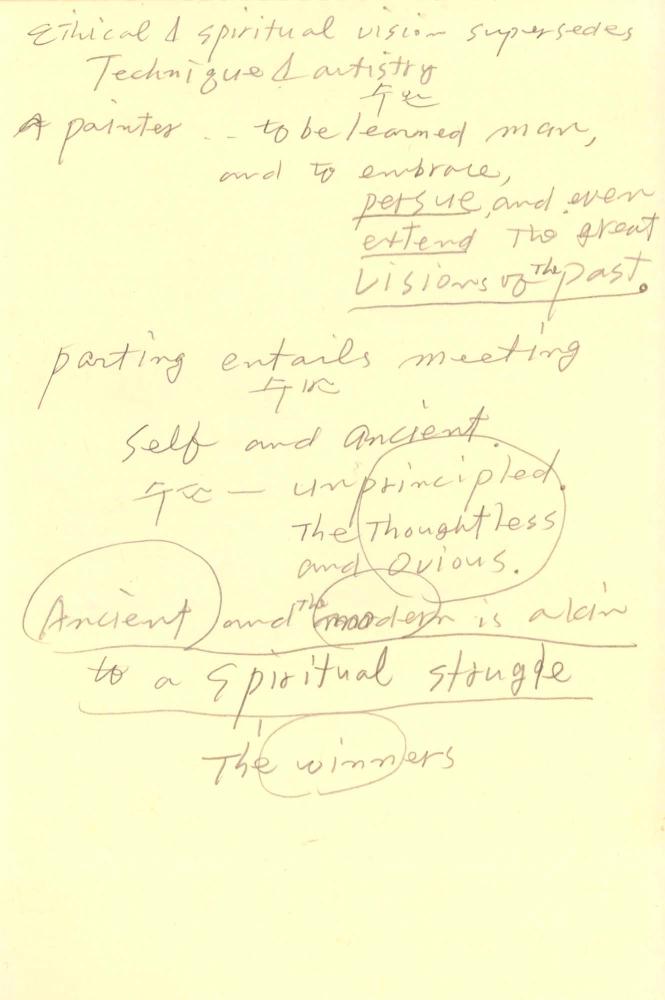 Ethical & spiritual vision supersedes
Technique & artistry
수묵
A painter .. to be learned man,
and to embrace,
persue, and even
extend The great
Visions of The past.
parting entails meeting
Self and ancient.
— unprincipled.
The Thoughtless
and Ovious.
Ancient and The modern is akin
to a Spiritual strugle
The winners